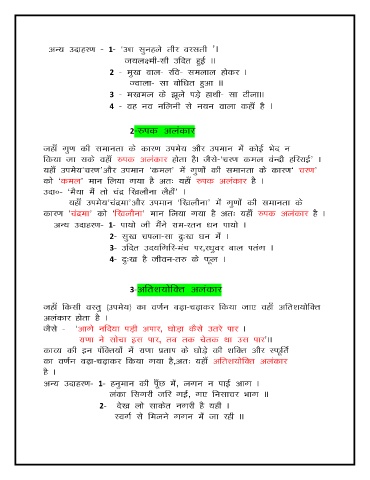 अन्य उदाहरण - 1- 'उषा सुनहले तीर बरसती '।
जयलक्ष्मी-सी उदित हुई ॥
2 - मुख बाल- रवि- समलाल होकर ।
ज्वाला- सा बोधित हुआ ॥
3 - मखमल के झूले पड़े हाथी- सा टीला॥
4 - वह नव नलिनी से नयन वाला कहाँ है ।
2-रुपक अलंकार
जहाँ गुण की समानता के कारण उपमेय और उपमान में कोई भेद न
किया जा सके वहाँ रुपक अलंकार होता है। जैसे-'चरण कमल वंन्दौ हरिराई' ।
यहाँ उपमेय'चरण'और उपमान 'कमल' में गुणों की समानता के कारण' चरण'
को 'कमल' मान लिया गया है अतः यहाँ रुपक अलंकार है ।
उदा०- 'मैया मैं तो चंद्र खिलौना लैहौं' ।
यहाँ उपमेय'चंद्रमा'और उपमान 'खिलौना' में गुणों की समानता के
कारण 'चंद्रमा' को 'खिलौना' मान लिया गया है अतः यहाँ रुपक अलंकार है ।
अन्य उदाहरण- 1- पायो जी मैंने राम-रतन धन पायो ।
2- सुख चपला-सा दुःख घन में ।
3- उदित उदयगिरि-मंच पर,रघुवर बाल पतंग ।
4- दुःख है जीवन-तरु के फूल ।
3-अतिशयोक्ति अलंकार
जहाँ किसी वस्तु (उपमेय) का वर्णन बढ़ा-चढ़ाकर किया जाए वहाँ अतिशयोक्ति
अलंकार होता है ।
जैसे - 'आगे नदिया पड़ी अपार, घोड़ा कैसे उतरे पार ।
राणा ने सोचा इस पार, तब तक चेतक था उस पार'॥
काव्य की इन पंक्तियों में राणा प्रताप के घोड़े की शक्ति और स्फूर्ति
का वर्णन बढ़ा-चढ़ाकर किया गया है,अतः यहाँ अतिशयोक्ति अलंकार
है ।
अन्य उदाहरण- 1- हनुमान की पूँछ में, लगन न पाई आग ।
लंका सिगरी जरि गई, गए निसाचर भाग ॥
2- देख लो साकेत नगरी है यही ।
स्वर्ग से मिलने गगन में जा रही ॥